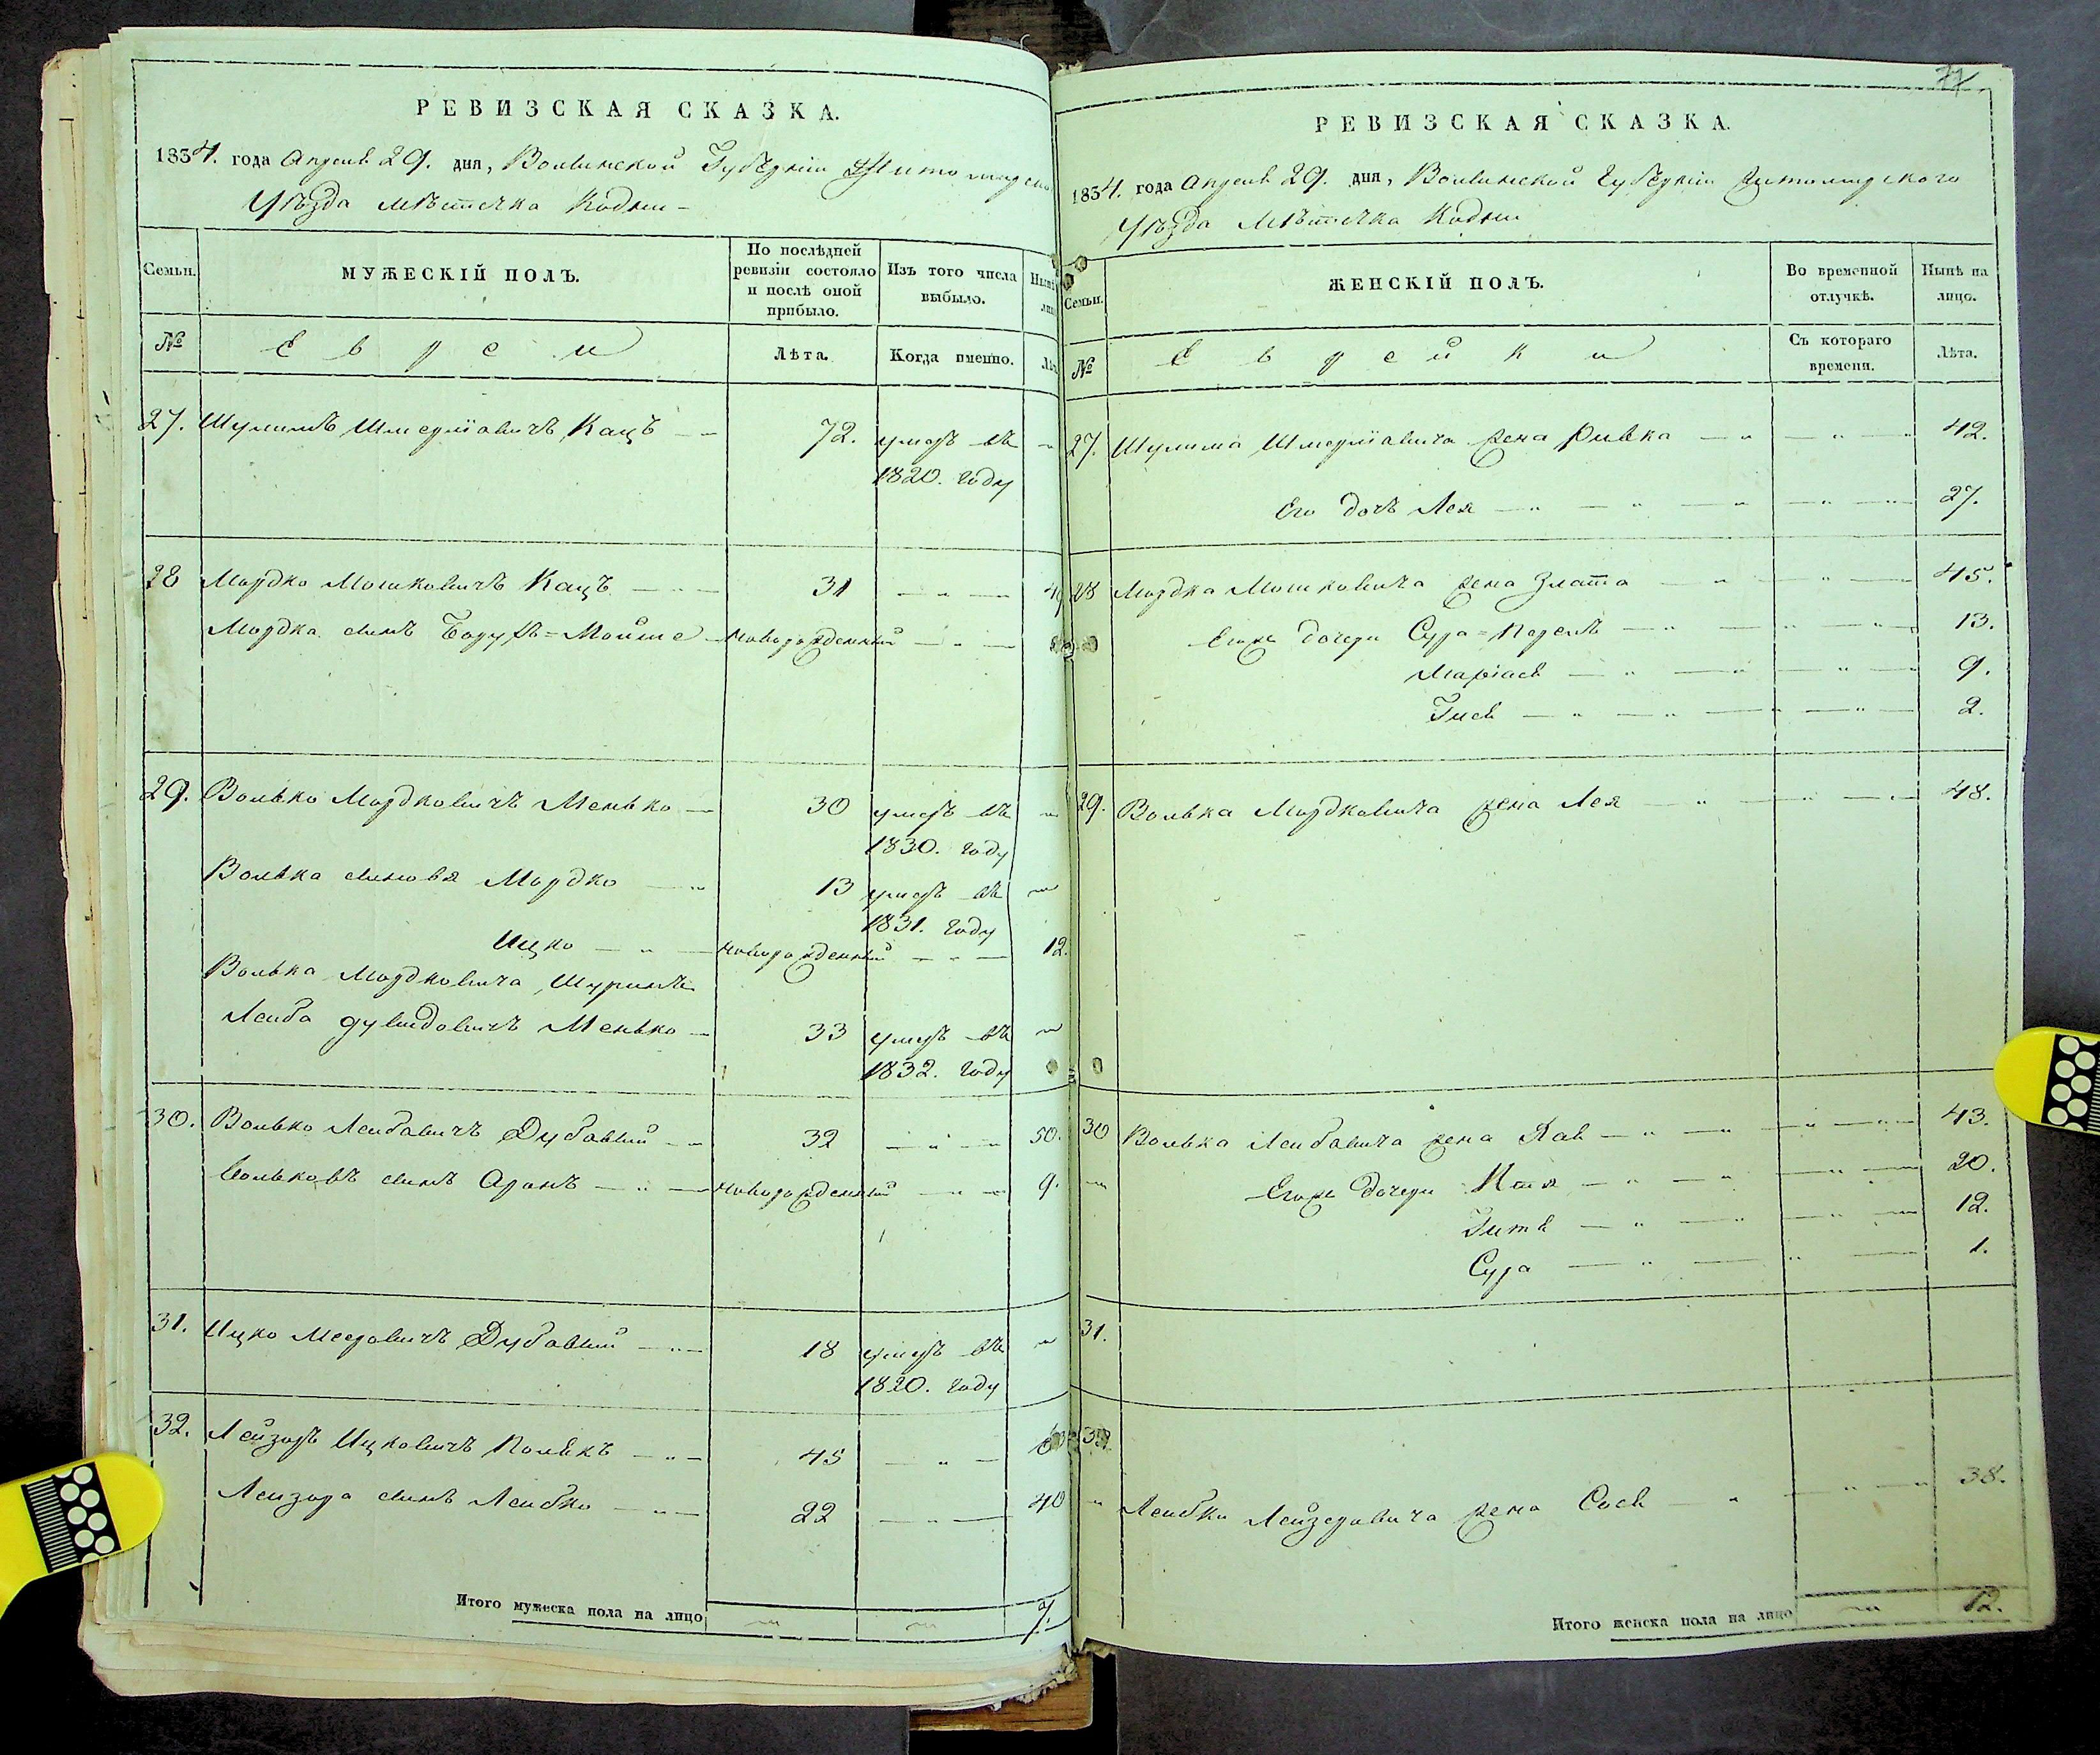 РЕВИЗСКАЯ СКАЗКА.
1834. года Апреля 29. дня, Волынской Губернiи Житомирско
Уѣзда мѣстечка Кодни
Семьи.
МУЖЕСКІЙ ПОЛЪ.
По послѣдней ревизіи состояло и послѣ оной прибыло.
Изъ того числа выбыло.
№
Евреи
Лѣта.
Когда именно.
27. Шулимъ Шмерліовичъ Кацъ 72. умеръ въ
1820. году
28 Мордко Мошковичъ Кацъ 31
Мордка сынъ Мойше новорожденный
29. Волько Мордковичъ Менько 30 умеръ въ
1830. году
Волька сыновя Мордко 13 умеръ въ
1831. году
Ицко новорожденный 12.
Волька Мордковича Шуринъ
Леиба Дувидовичъ Менько 33 умеръ въ
1832. году
30. Волько Леибовичъ Дубовый 32 50.
Вольковъ сынъ Аронъ новорожденный 9.
31. Ицко Мееровичъ Дубовый 18 умеръ въ
1820. году
32. Лейзоръ Ицковичъ 45
Леизора сынъ Леибко 22 40
Итого мужеска пола на лицо 7.
77
РЕВИЗСКАЯ СКАЗКА.
1834. года Апреля 29. дня, Волынской Губернiи Житомирского
Уѣзда Мѣстечка Кодни
Семьи.
ЖЕНСКІЙ ПОЛЪ.
Во временной отлучкѣ.
Нынѣ на лицо.
№
Еврейки
Съ котораго времени.
Лѣта.
27. Шулима Шмерліовича жена Ривка 42.
Его дочъ Лея 27.
28 Мордка Мошковича жена Злата 45.
Егожъ дочери Сура=Перель 13.
Маріась 9.
Гися 2.
29. Волька Мордковича жена Лея 48.
30 Волька Леибовича жена 43.
Егожъ дочери 20.
Гитя 12.
Сура 1.
31.
32
Леибки Лейзеровича жена Сося 38.
Итого женска пола на лицо 12.